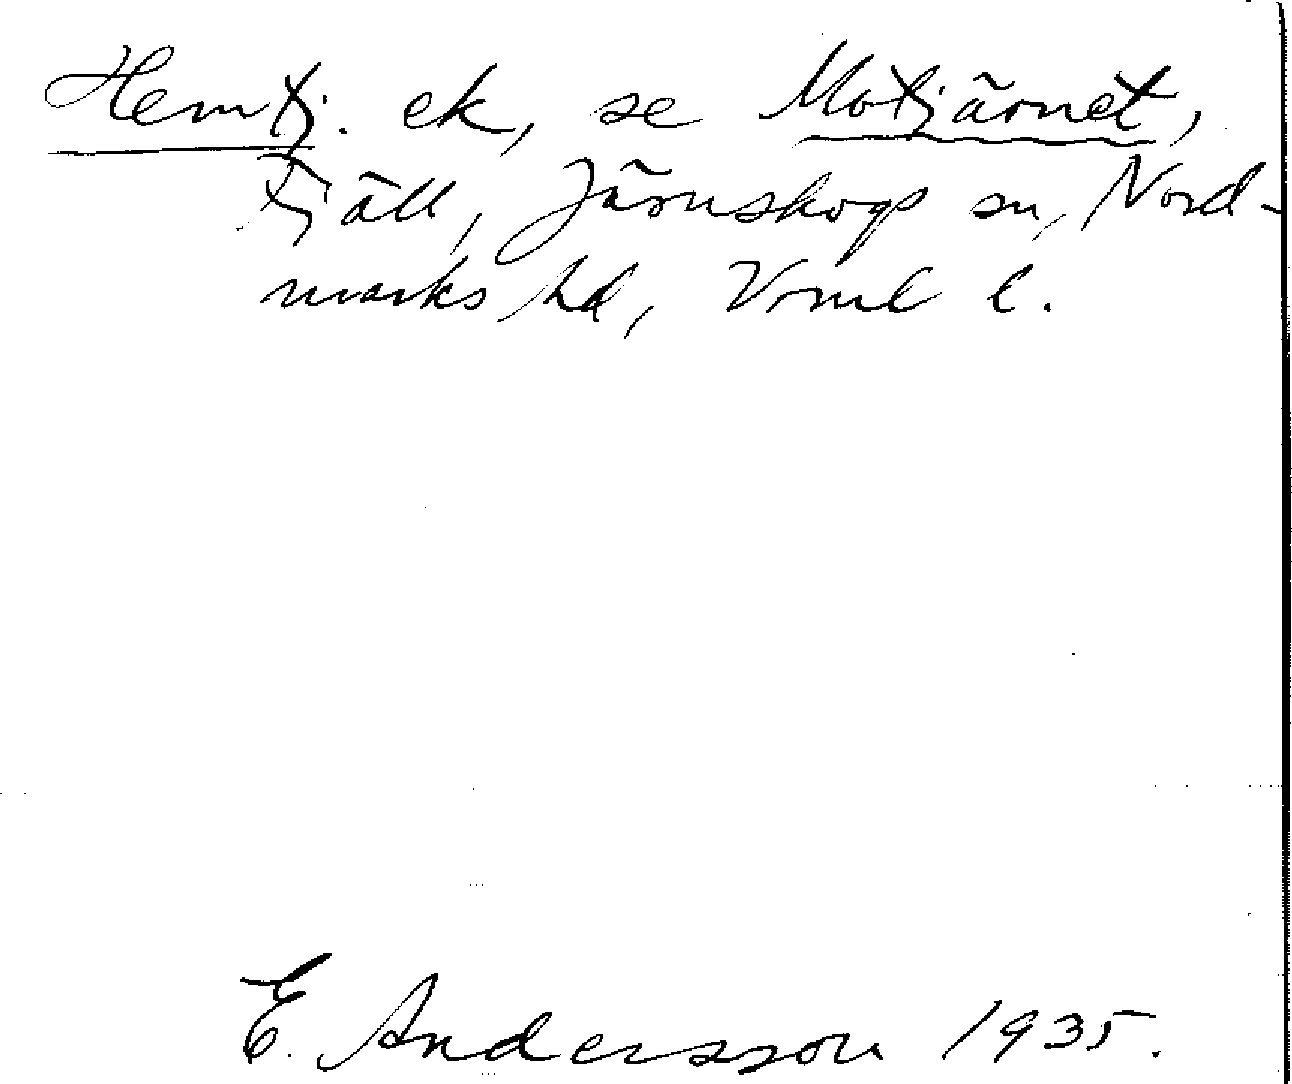 Hemtj. ek, se Motjärnet,
Fjäll, Järnskogs sn, Nord-
marks hd, Vrml l.
E. Andersson 1935.